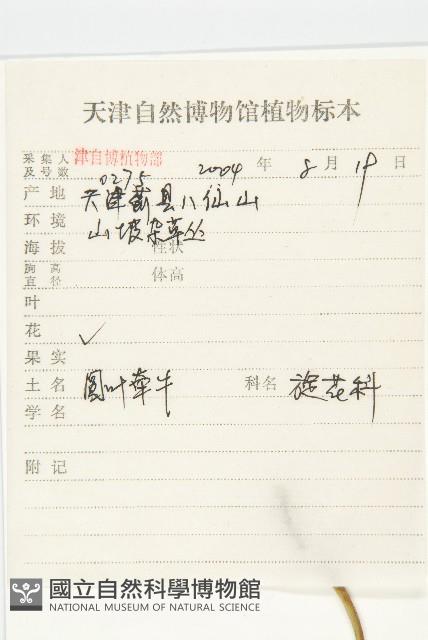 天津自然博物馆植物标本
采集人及号数 津自博植物部 0275 2004 年 8 月 19 日
产地 天津蓟县八仙山
环境 山坡杂草丛
海拔 性状
胸高直径 体高
叶
花 ✓
果实
土名 圆叶牵牛 科名 旋花科
学名
附记
國立自然科學博物館
NATIONAL MUSEUM OF NATURAL SCIENCE